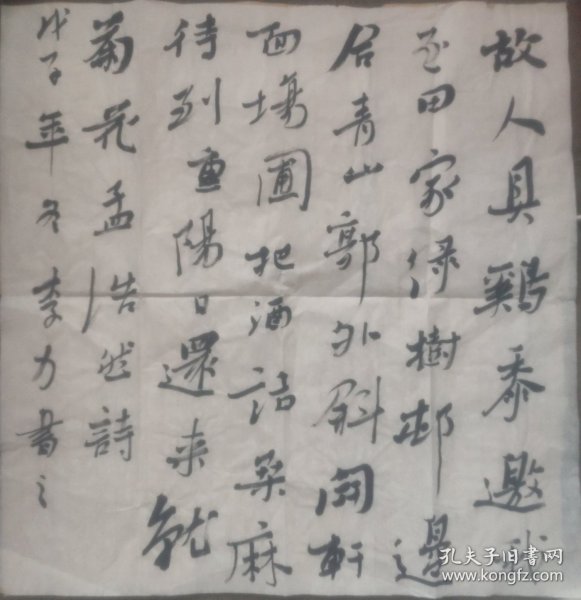 故人具鷄黍邀我
至田家绿樹邨邊
合青山郭外斜開軒
面塲圃把酒話桑麻
待到重陽日還来就
菊花孟浩然詩
戊子年冬李力書之
孔夫子旧书网
www.kongfz.com